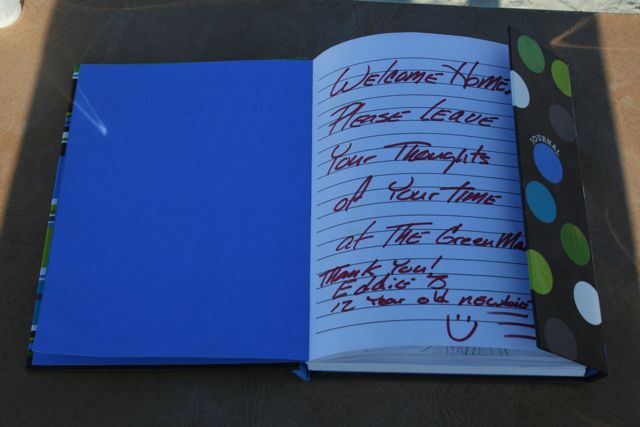 Welcome Home,
Please Leave
Your Thoughts
of Your Time
at The Green Man
Thank You!
Eddie B
12 Year old newbie
JOURNAL